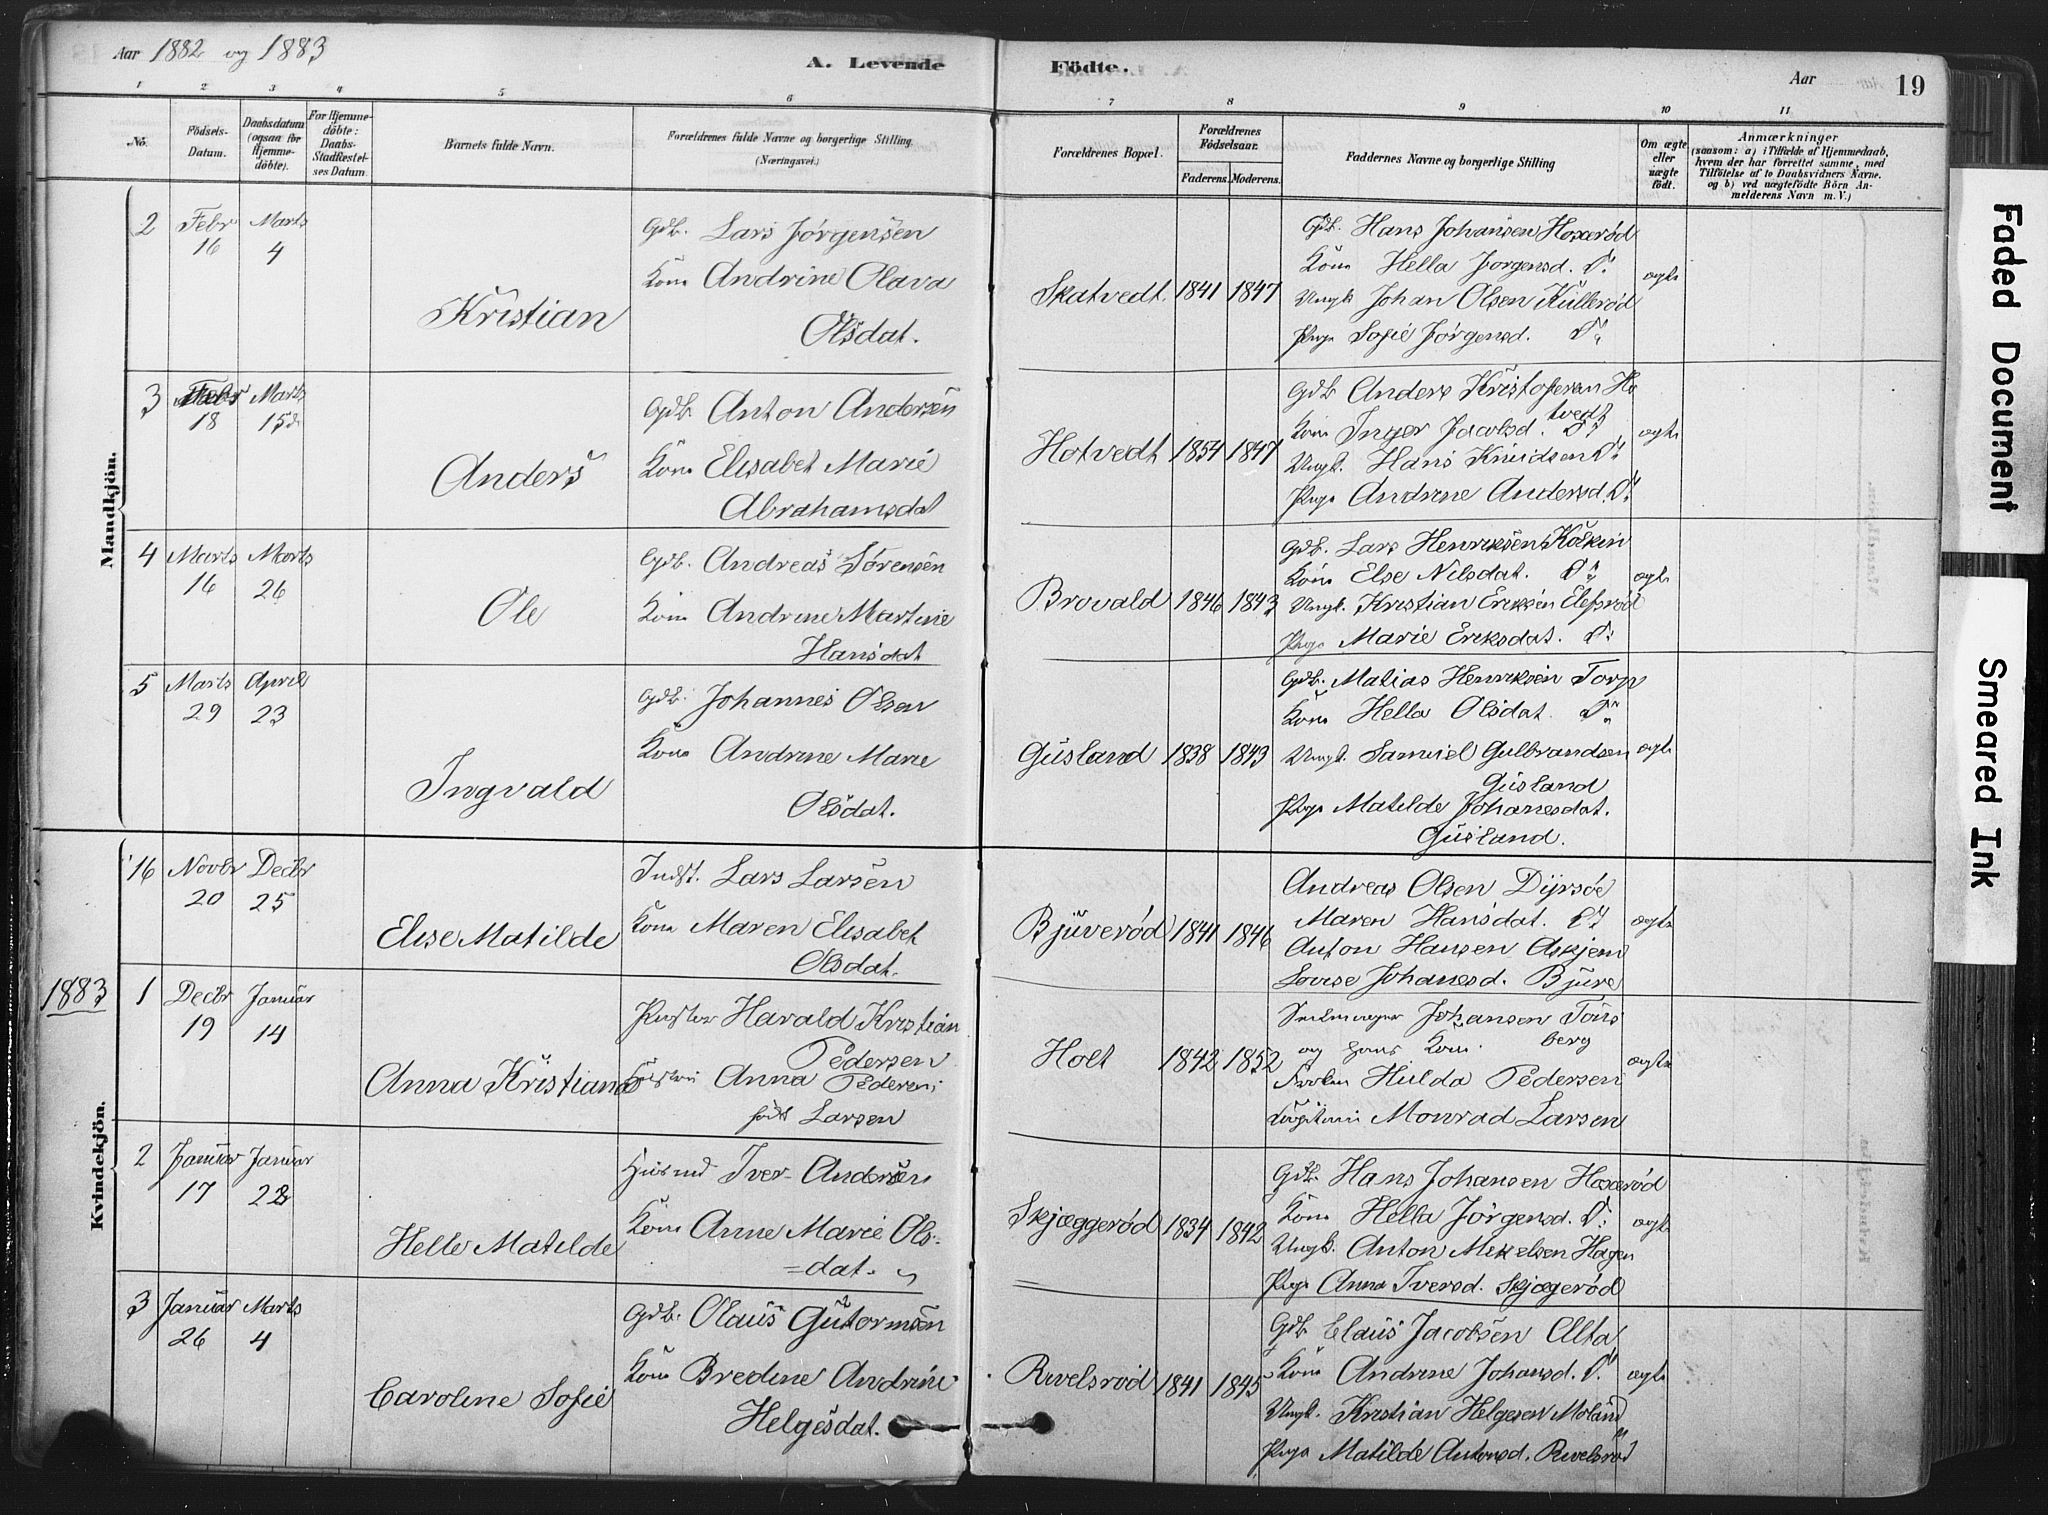 Aar 1882 og 1883
A. Levende Födte.
Aar
19
1 2 3 4 5 6 7 8 9 10 11
No.
Födsels-Datum.
Daabsdatum (ogsaa for Hjemme-döbte).
For Hjemme-döbte: Daabs-Stadfæstel-ses Datum.
Barnets fulde Navn.
Forældrenes fulde Navne og borgerlige Stilling. (Næringsvei.)
Forældrenes Bopæl.
Forældrenes Födselsaar.
Faderens. Moderens.
Faddernes Navne og borgerlige Stilling
Om ægte eller uægte födt.
Anmærkninger
(saasom: a) i Tilfælde af Hjemmedaab,
hvem der har forrettet samme, med
Tilföielse af to Daabsvidners Navne.
og b) ved uægtefödte Börn An-
melderens Navn m. V.)
Mandkjön.
2 Febr 16 Marts 4
Kristian
Gdb. Lars Jørgensen
Kone Andrine Olava
Olsdat.
Skatvedt 1841 1847
Gdb. Hans Johansen Hoxerød
Kone Hella Jørgensd. Do
Ungk. Johan Olsen Kullerød
Pige Sofie Jørgensd. Do
ægte
3 Febr 18 Marts 15
Anders
Gdb. Anton Andersen
Kone Elisabet Marie
Abrahamsdat
Hotvedt 1854 1847
Gdb Anders Kristofersen Ho
tvedt
Kone Inger Jacobsd. Do
Ungk. Hans Knudsen Do
Pige Andrine Andersd. Do
ægte
4 Marts 16 Marts 26
Ole
Gdb. Andreas Sørensen
Kone Andrine Martine
Hansdat
Brovald 1846 1843
Gdb. Lars Henriksen
Kone Else Nilsdat. Do
Ungk. Kristian Eriksen Elefsrød
Pige Marie Eriksdat. Do
ægte
5 Marts 29 April 23
Ingvald
Gdb. Johannes Olsen
Kone Andrine Marie
Olsdat.
Gusland 1838 1843
Gdb. Matias Henriksen Torp
Kone Hella Olsdat. Do
Ungk. Samuel Gulbrandsen
Gusland
Pige Matilde Johanesdat.
Gusland.
ægte
Kvindekjön.
16 Novbr 20 Decbr 25
Elise Matilde
Indst. Lars Larsen
Kone Maren Elisabet
Olsdat.
Bjuverød 1841 1846
Andreas Olsen Dyrsøe
Maren Hansdat. Do
Anton Hansen Askjem
Lovise Johanesd. Bjure
ægte
1883
1 Decbr 19 Januar 14
Anna Kristiane
Pastor Harald Kristian
Pedersen
Anna Pedersen
født Larsen
Holt 1842 1852
Johansen Tøns
berg
og hans Kone.
Frøken Hulda Pedersen
Monrad Larsen
ægte
2 Januar 17 Januar 28
Helle Matilde
Husmd Iver Andersen
Kone Anne Marie Ols-
=dat.
Skjæggerød 1834 1842
Gdb. Hans Johansen Hoxerød
Kone Hella Jørgensd. Do
Ungk. Anton Mikelsen Hagen
Pige Anna Iversd. Skjægerød
ægte
3 Januar 26 Marts 4
Caroline Sofie
Gdb. Olaus Gutormsen
Kone Bredine Andrine
Helgesdat.
Rivelsrød 1841 1845
Gdb Claus Jacobsen Alta
Kone Andrine Johansd. Do
Ungk. Kristian Helgesen Moland
Pige Matilde Antonsd. Rivelsrød
ægte
Faded Document
Smeared Ink